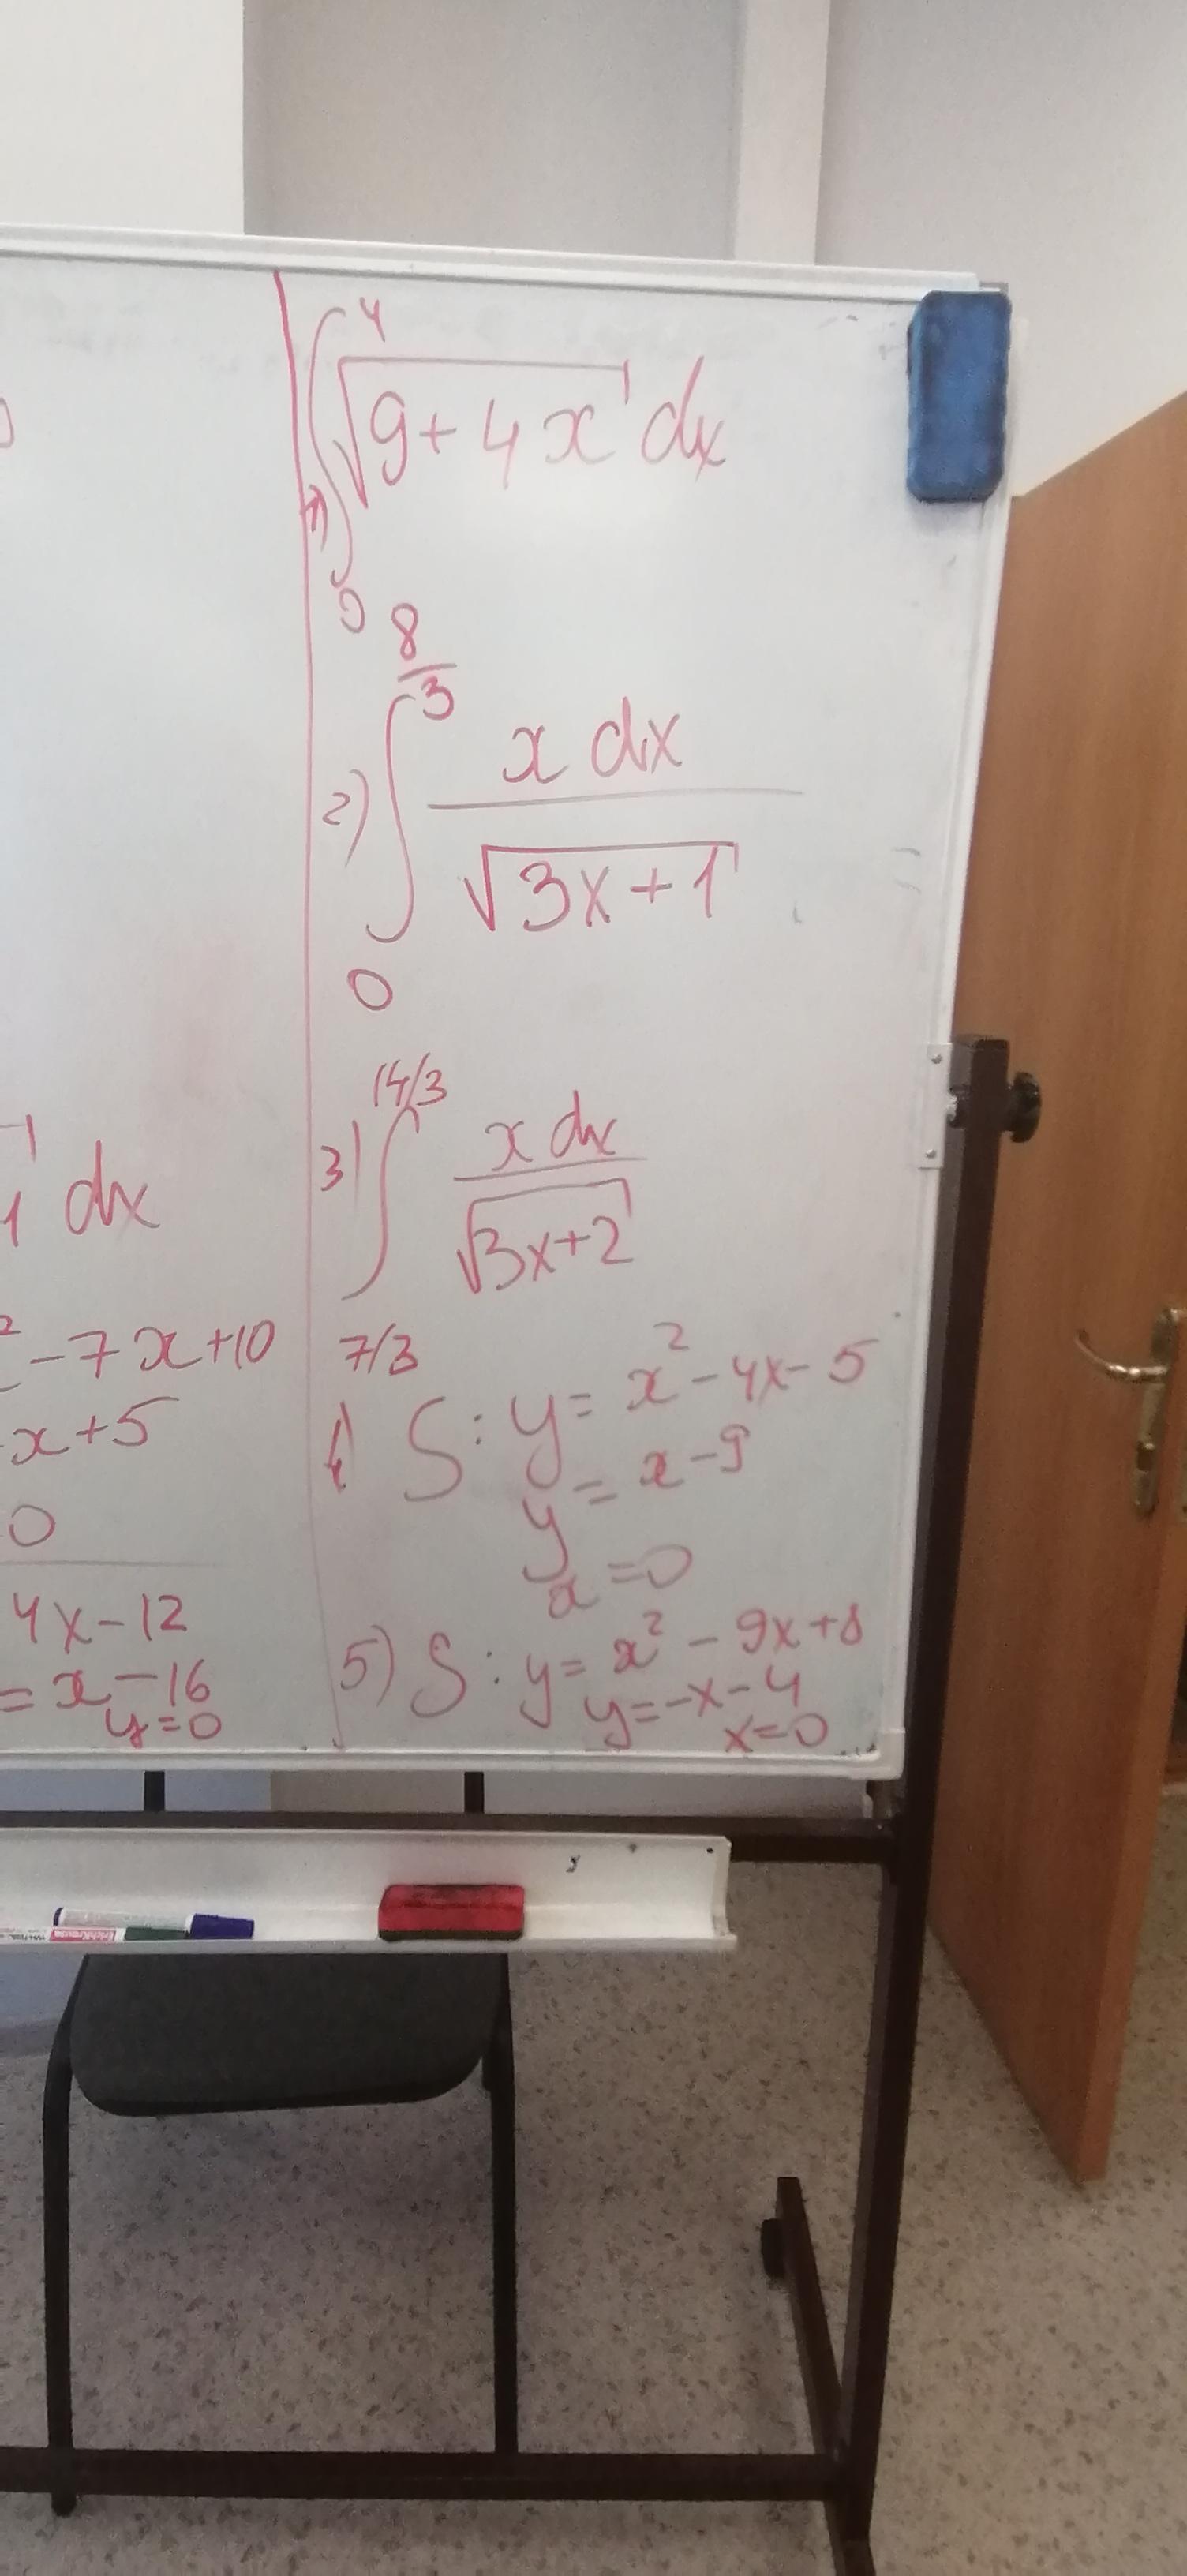 1) ∫₀⁴ √(9+4x) dx
2) ∫₀^(8/3) x dx / √(3x+1)
3) ∫_(7/3)^(14/3) x dx / √(3x+2)
4) S: y = x² - 4x - 5
y = x - 9
x = 0
5) S: y = x² - 9x + 8
y = -x - 4
x = 0
1 dx
² - 7x + 10
x + 5
0
4x - 12
= x - 16
y = 0
ErichKrause